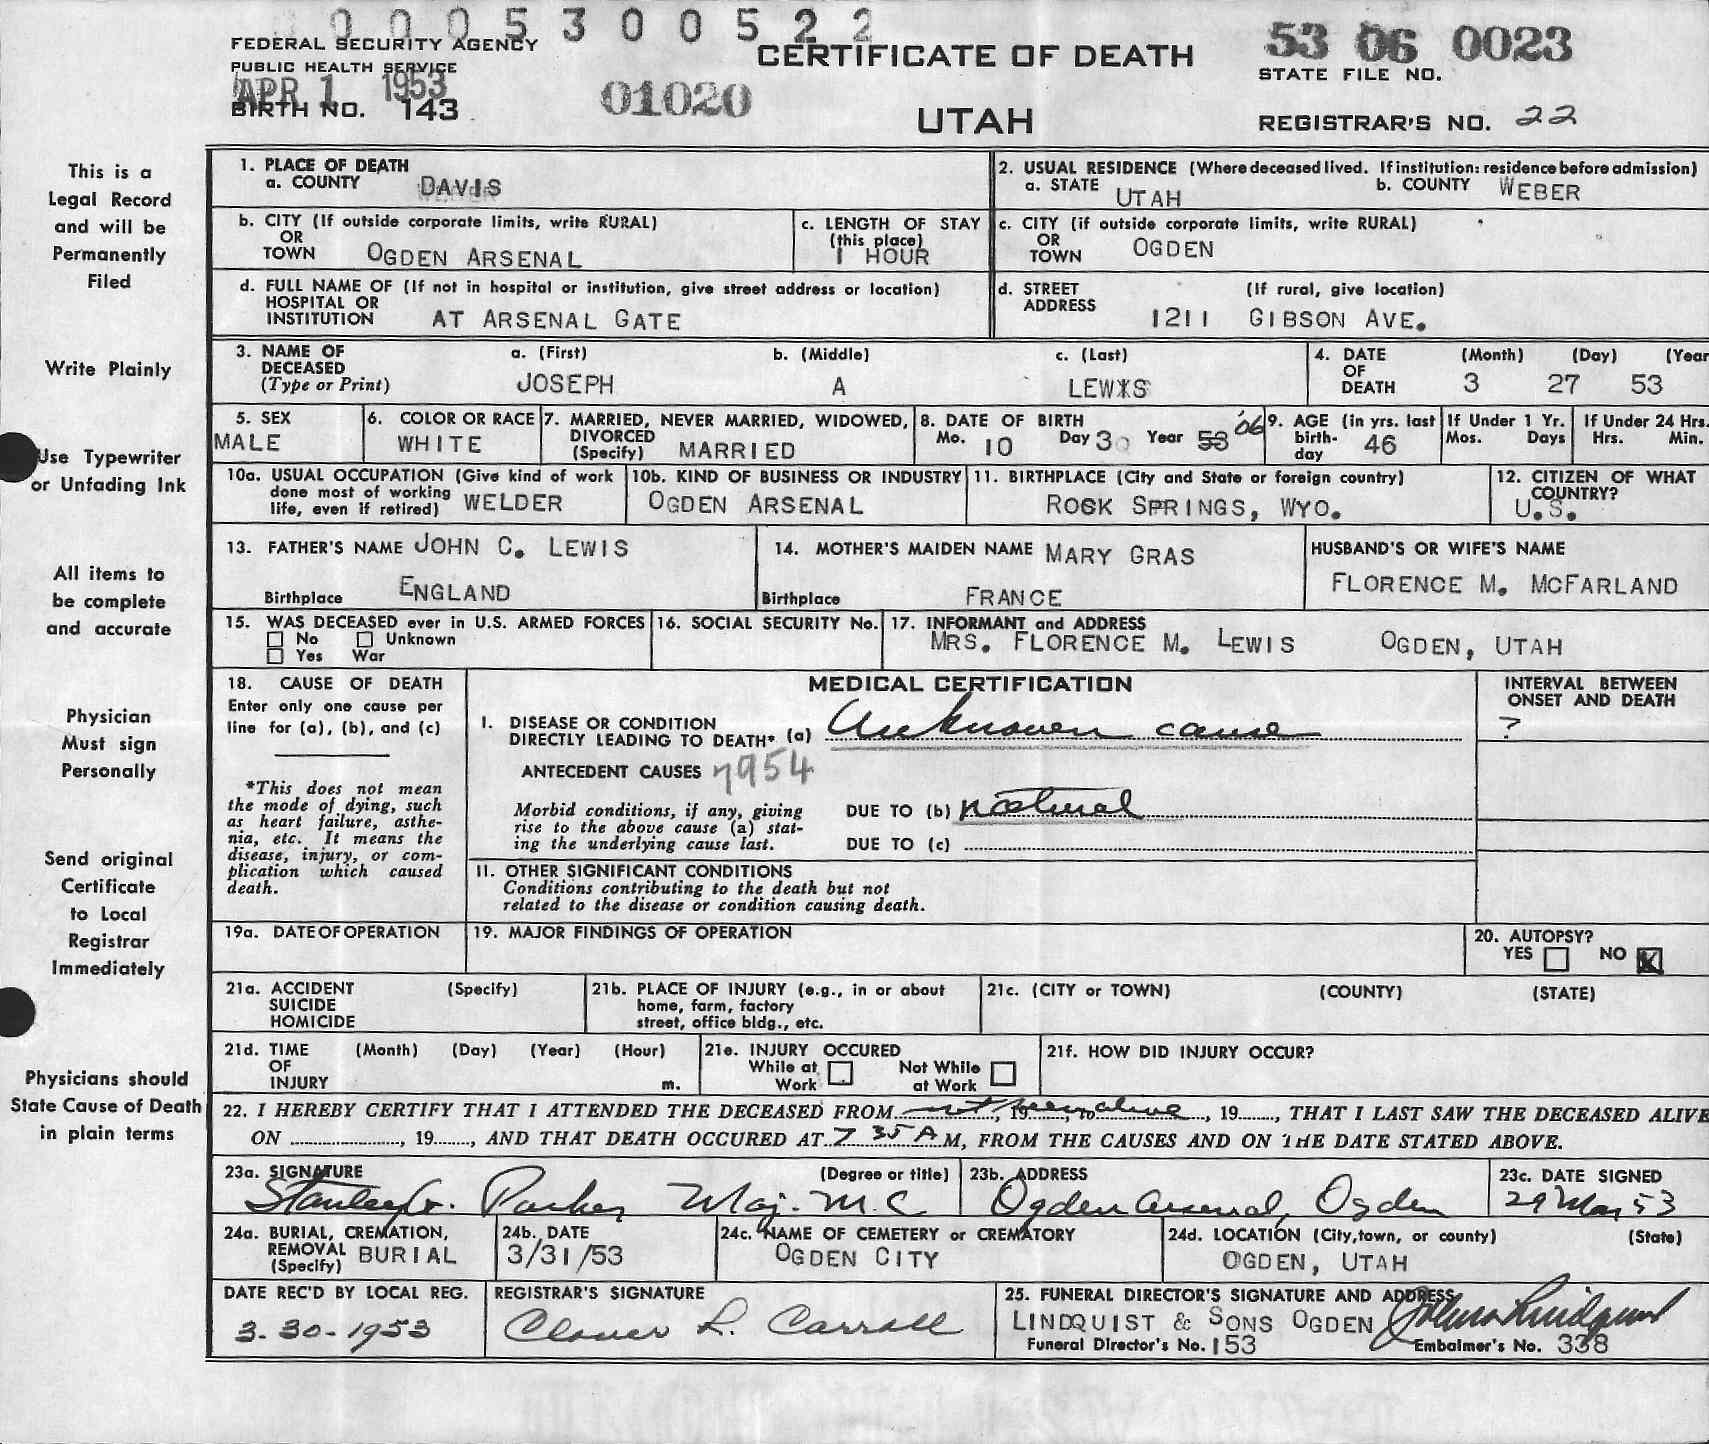 0005300522
FEDERAL SECURITY AGENCY
PUBLIC HEALTH SERVICE
APR 1 1953
BIRTH NO. 143
01020
CERTIFICATE OF DEATH
UTAH
53 06 0023
STATE FILE NO.
REGISTRAR'S NO. 22
This is a
Legal Record
and will be
Permanently
Filed
Write Plainly
Use Typewriter
or Unfading Ink
All items to
be complete
and accurate
Physician
Must sign
Personally
Send original
Certificate
to Local
Registrar
Immediately
Physicians should
State Cause of Death
in plain terms
1. PLACE OF DEATH
a. COUNTY DAVIS
2. USUAL RESIDENCE (Where deceased lived. If institution: residence before admission)
a. STATE UTAH b. COUNTY WEBER
b. CITY (If outside corporate limits, write RURAL)
OR
TOWN OGDEN ARSENAL
c. LENGTH OF STAY
(this place)
1 HOUR
c. CITY (if outside corporate limits, write RURAL)
OR
TOWN OGDEN
d. FULL NAME OF (If not in hospital or institution, give street address or location)
HOSPITAL OR
INSTITUTION AT ARSENAL GATE
d. STREET (If rural, give location)
ADDRESS 1211 GIBSON AVE.
3. NAME OF
DECEASED
(Type or Print)
a. (First) b. (Middle) c. (Last)
JOSEPH A LEWIS
4. DATE
OF
DEATH
(Month) (Day) (Year
3 27 53
5. SEX
MALE
6. COLOR OR RACE
WHITE
7. MARRIED, NEVER MARRIED, WIDOWED,
DIVORCED
(Specify) MARRIED
8. DATE OF BIRTH
Mo. 10 Day 30 Year 53 '06
9. AGE (in yrs. last
birth-
day 46
If Under 1 Yr.
Mos. Days
If Under 24 Hrs.
Hrs. Min.
10a. USUAL OCCUPATION (Give kind of work
done most of working
life, even if retired) WELDER
10b. KIND OF BUSINESS OR INDUSTRY
OGDEN ARSENAL
11. BIRTHPLACE (City and State or foreign country)
ROCK SPRINGS, WYO.
12. CITIZEN OF WHAT
COUNTRY?
U.S.
13. FATHER'S NAME JOHN C. LEWIS
Birthplace ENGLAND
14. MOTHER'S MAIDEN NAME MARY GRAS
Birthplace FRANCE
HUSBAND'S OR WIFE'S NAME
FLORENCE M. MCFARLAND
15. WAS DECEASED ever in U.S. ARMED FORCES
No Unknown
Yes War
16. SOCIAL SECURITY No.
17. INFORMANT and ADDRESS
MRS. FLORENCE M. LEWIS OGDEN, UTAH
18. CAUSE OF DEATH
Enter only one cause per
line for (a), (b), and (c)
*This does not mean
the mode of dying, such
as heart failure, asthe-
nia, etc. It means the
disease, injury, or com-
plication which caused
death.
MEDICAL CERTIFICATION
I. DISEASE OR CONDITION
DIRECTLY LEADING TO DEATH* (a) Unknown cause
ANTECEDENT CAUSES 7954
Morbid conditions, if any, giving
rise to the above cause (a) stat-
ing the underlying cause last.
DUE TO (b) natural
DUE TO (c)
II. OTHER SIGNIFICANT CONDITIONS
Conditions contributing to the death but not
related to the disease or condition causing death.
INTERVAL BETWEEN
ONSET AND DEATH
?
19a. DATE OF OPERATION
19. MAJOR FINDINGS OF OPERATION
20. AUTOPSY?
YES NO X
21a. ACCIDENT (Specify)
SUICIDE
HOMICIDE
21b. PLACE OF INJURY (e.g., in or about
home, farm, factory
street, office bldg., etc.
21c. (CITY or TOWN) (COUNTY) (STATE)
21d. TIME (Month) (Day) (Year) (Hour)
OF
INJURY m.
21e. INJURY OCCURED
While at Not While
Work at Work
21f. HOW DID INJURY OCCUR?
22. I HEREBY CERTIFY THAT I ATTENDED THE DECEASED FROM not seen alive, 19, THAT I LAST SAW THE DECEASED ALIVE
ON , 19, AND THAT DEATH OCCURED AT 7 35 A M, FROM THE CAUSES AND ON THE DATE STATED ABOVE.
23a. SIGNATURE (Degree or title)
Stanley G. Parker Maj. M.C.
23b. ADDRESS
Ogden Arsenal, Ogden
23c. DATE SIGNED
29 Mar 53
24a. BURIAL, CREMATION,
REMOVAL
(Specify) BURIAL
24b. DATE
3/31/53
24c. NAME OF CEMETERY or CREMATORY
OGDEN CITY
24d. LOCATION (City, town, or county) (State)
OGDEN, UTAH
DATE REC'D BY LOCAL REG.
3-30-1953
REGISTRAR'S SIGNATURE
Clover L. Carroll
25. FUNERAL DIRECTOR'S SIGNATURE AND ADDRESS
LINDQUIST & SONS OGDEN
Funeral Director's No. 153
Embalmer's No. 338